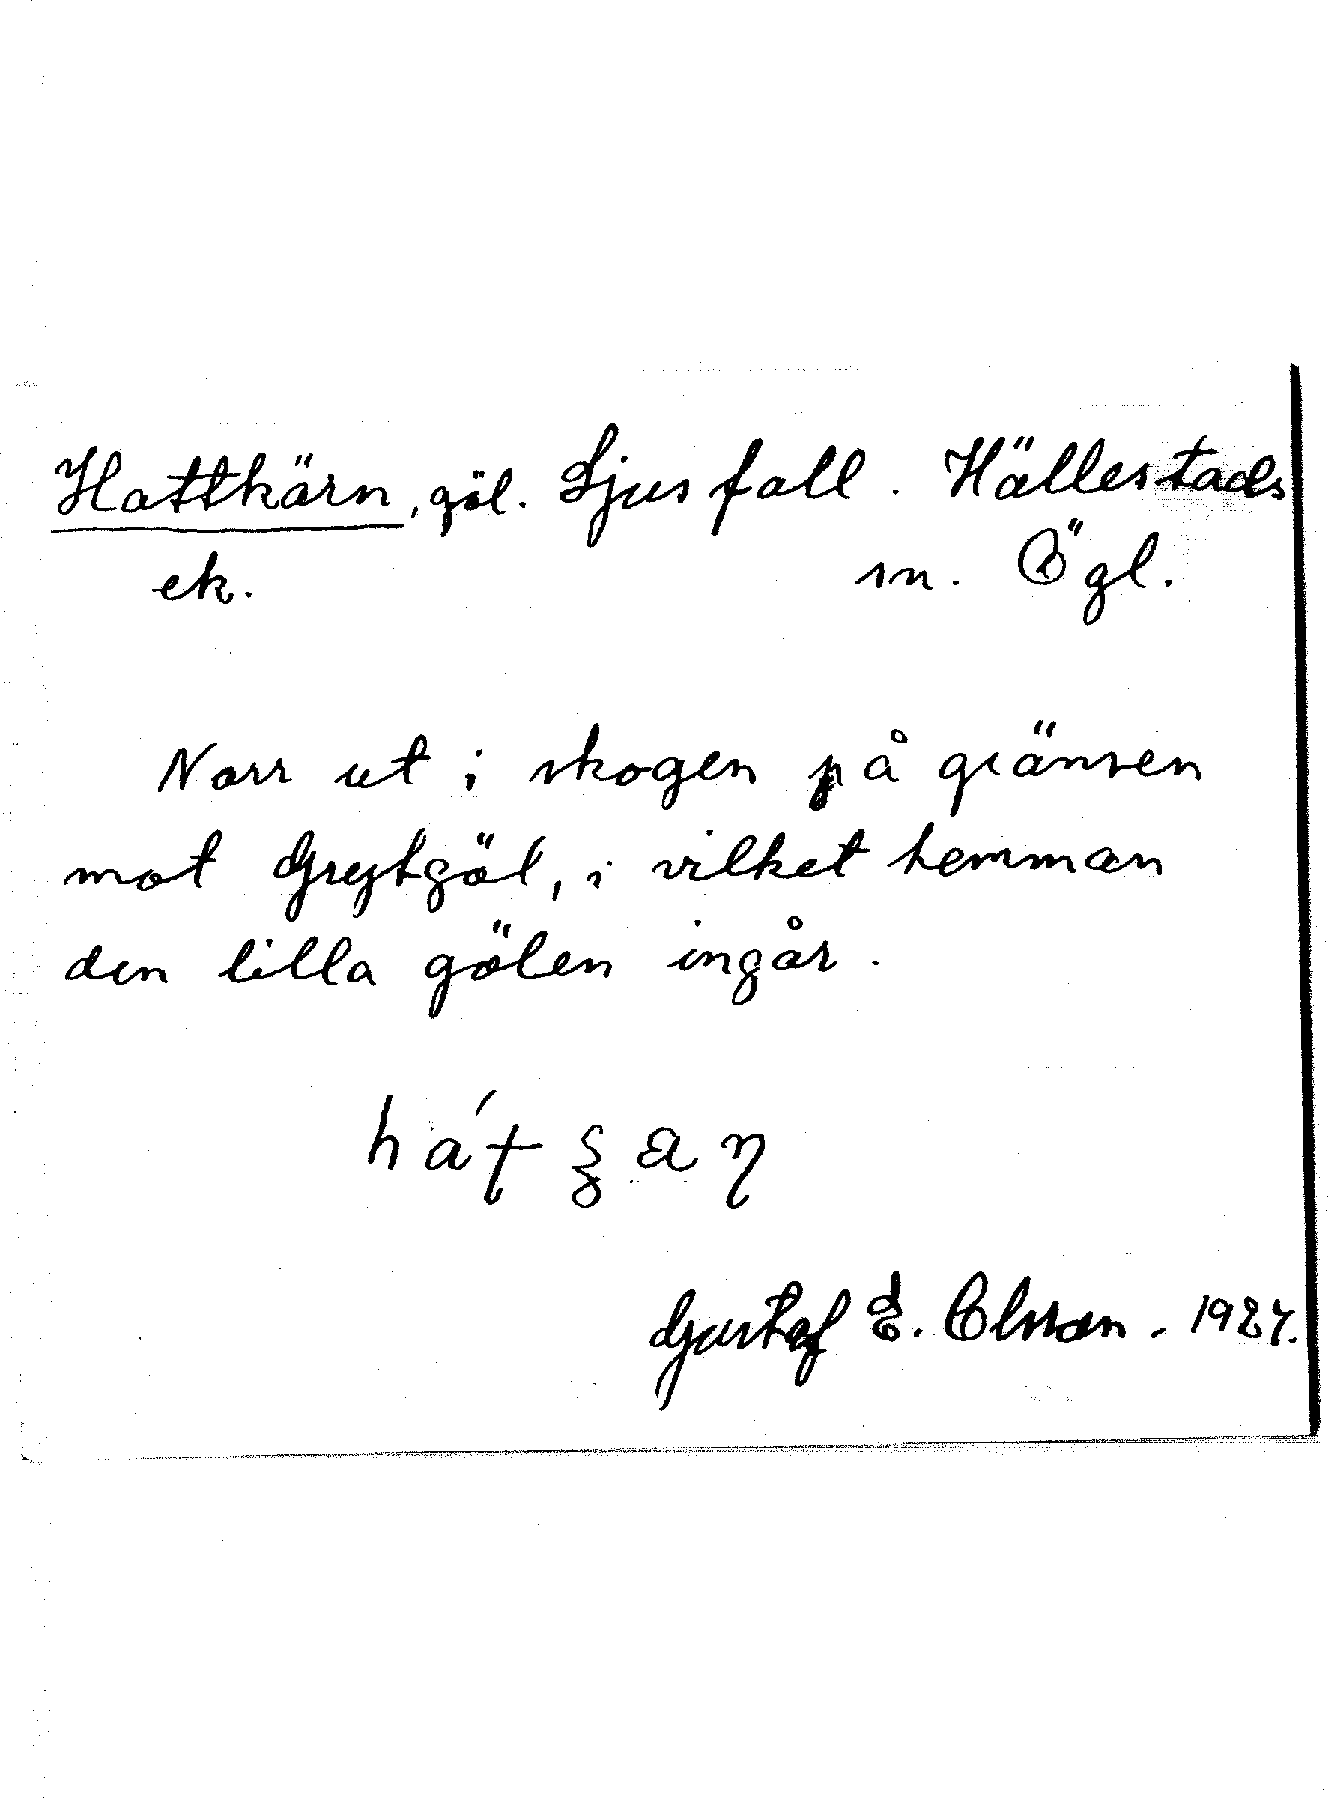 Hattkärn, göl. Ljusfall. Hällestads
ek. sn. Ögl.
Norr ut i skogen på gränsen
mot Grytgöl, i vilket hemman
den lilla gölen ingår.
Gustaf E. Olsson. 1927.